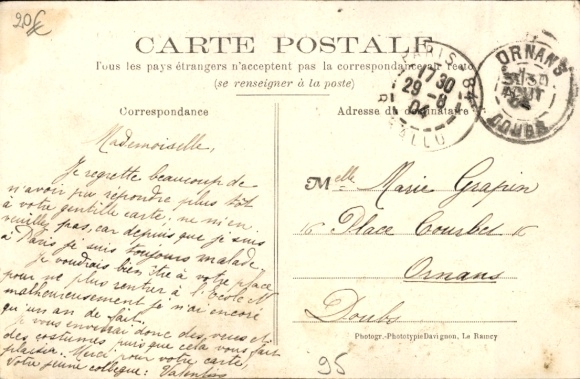 20f
CARTE POSTALE
Tous les pays étrangers n'acceptent pas la correspondance au recto
(se renseigner à la poste)
PARIS 84
17 30
29 - 8
04
R. BALLU
ORNANS
30
AOUT
04
DOUBS
Correspondance
Adresse du destinataire
Mademoiselle,
Je regrette beaucoup de
n'avoir pu répondre plus tôt
à votre gentille carte, ne m'en
veuillez pas, car depuis que je suis
à Paris je suis toujours malade.
Je voudrais bien être à votre place
pour ne plus rentrer à l'Ecole N
malheureusement je n'ai encore
qu'un an de fait.
Je vous enverrai donc des vues et
des costumes puisque cela vous fait
plaisir. Merci pour votre carte,
Votre jeune collègue: Valentine
Melle Marie Grapin
16 Place Courbet 16
Ornans
Doubs
Photogr.-Phototypie Davignon, Le Raincy
95